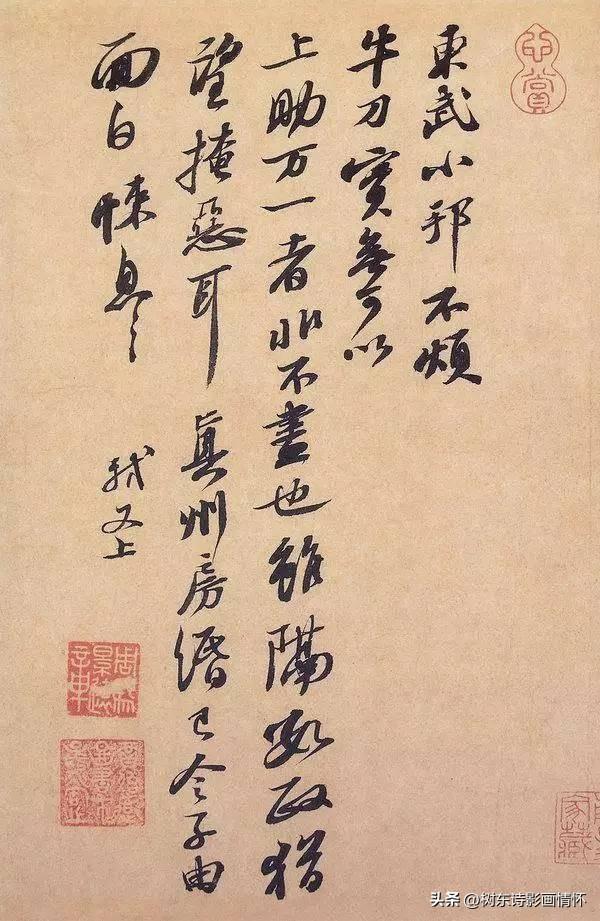 東武小邦不煩
牛刀實無可以
上助万一者非不盡也雖隔數政猶
望掩惡耳真州房緡已令子由
面白悚息〻
軾又上
賞
家藏
头条 @树东诗影画情怀